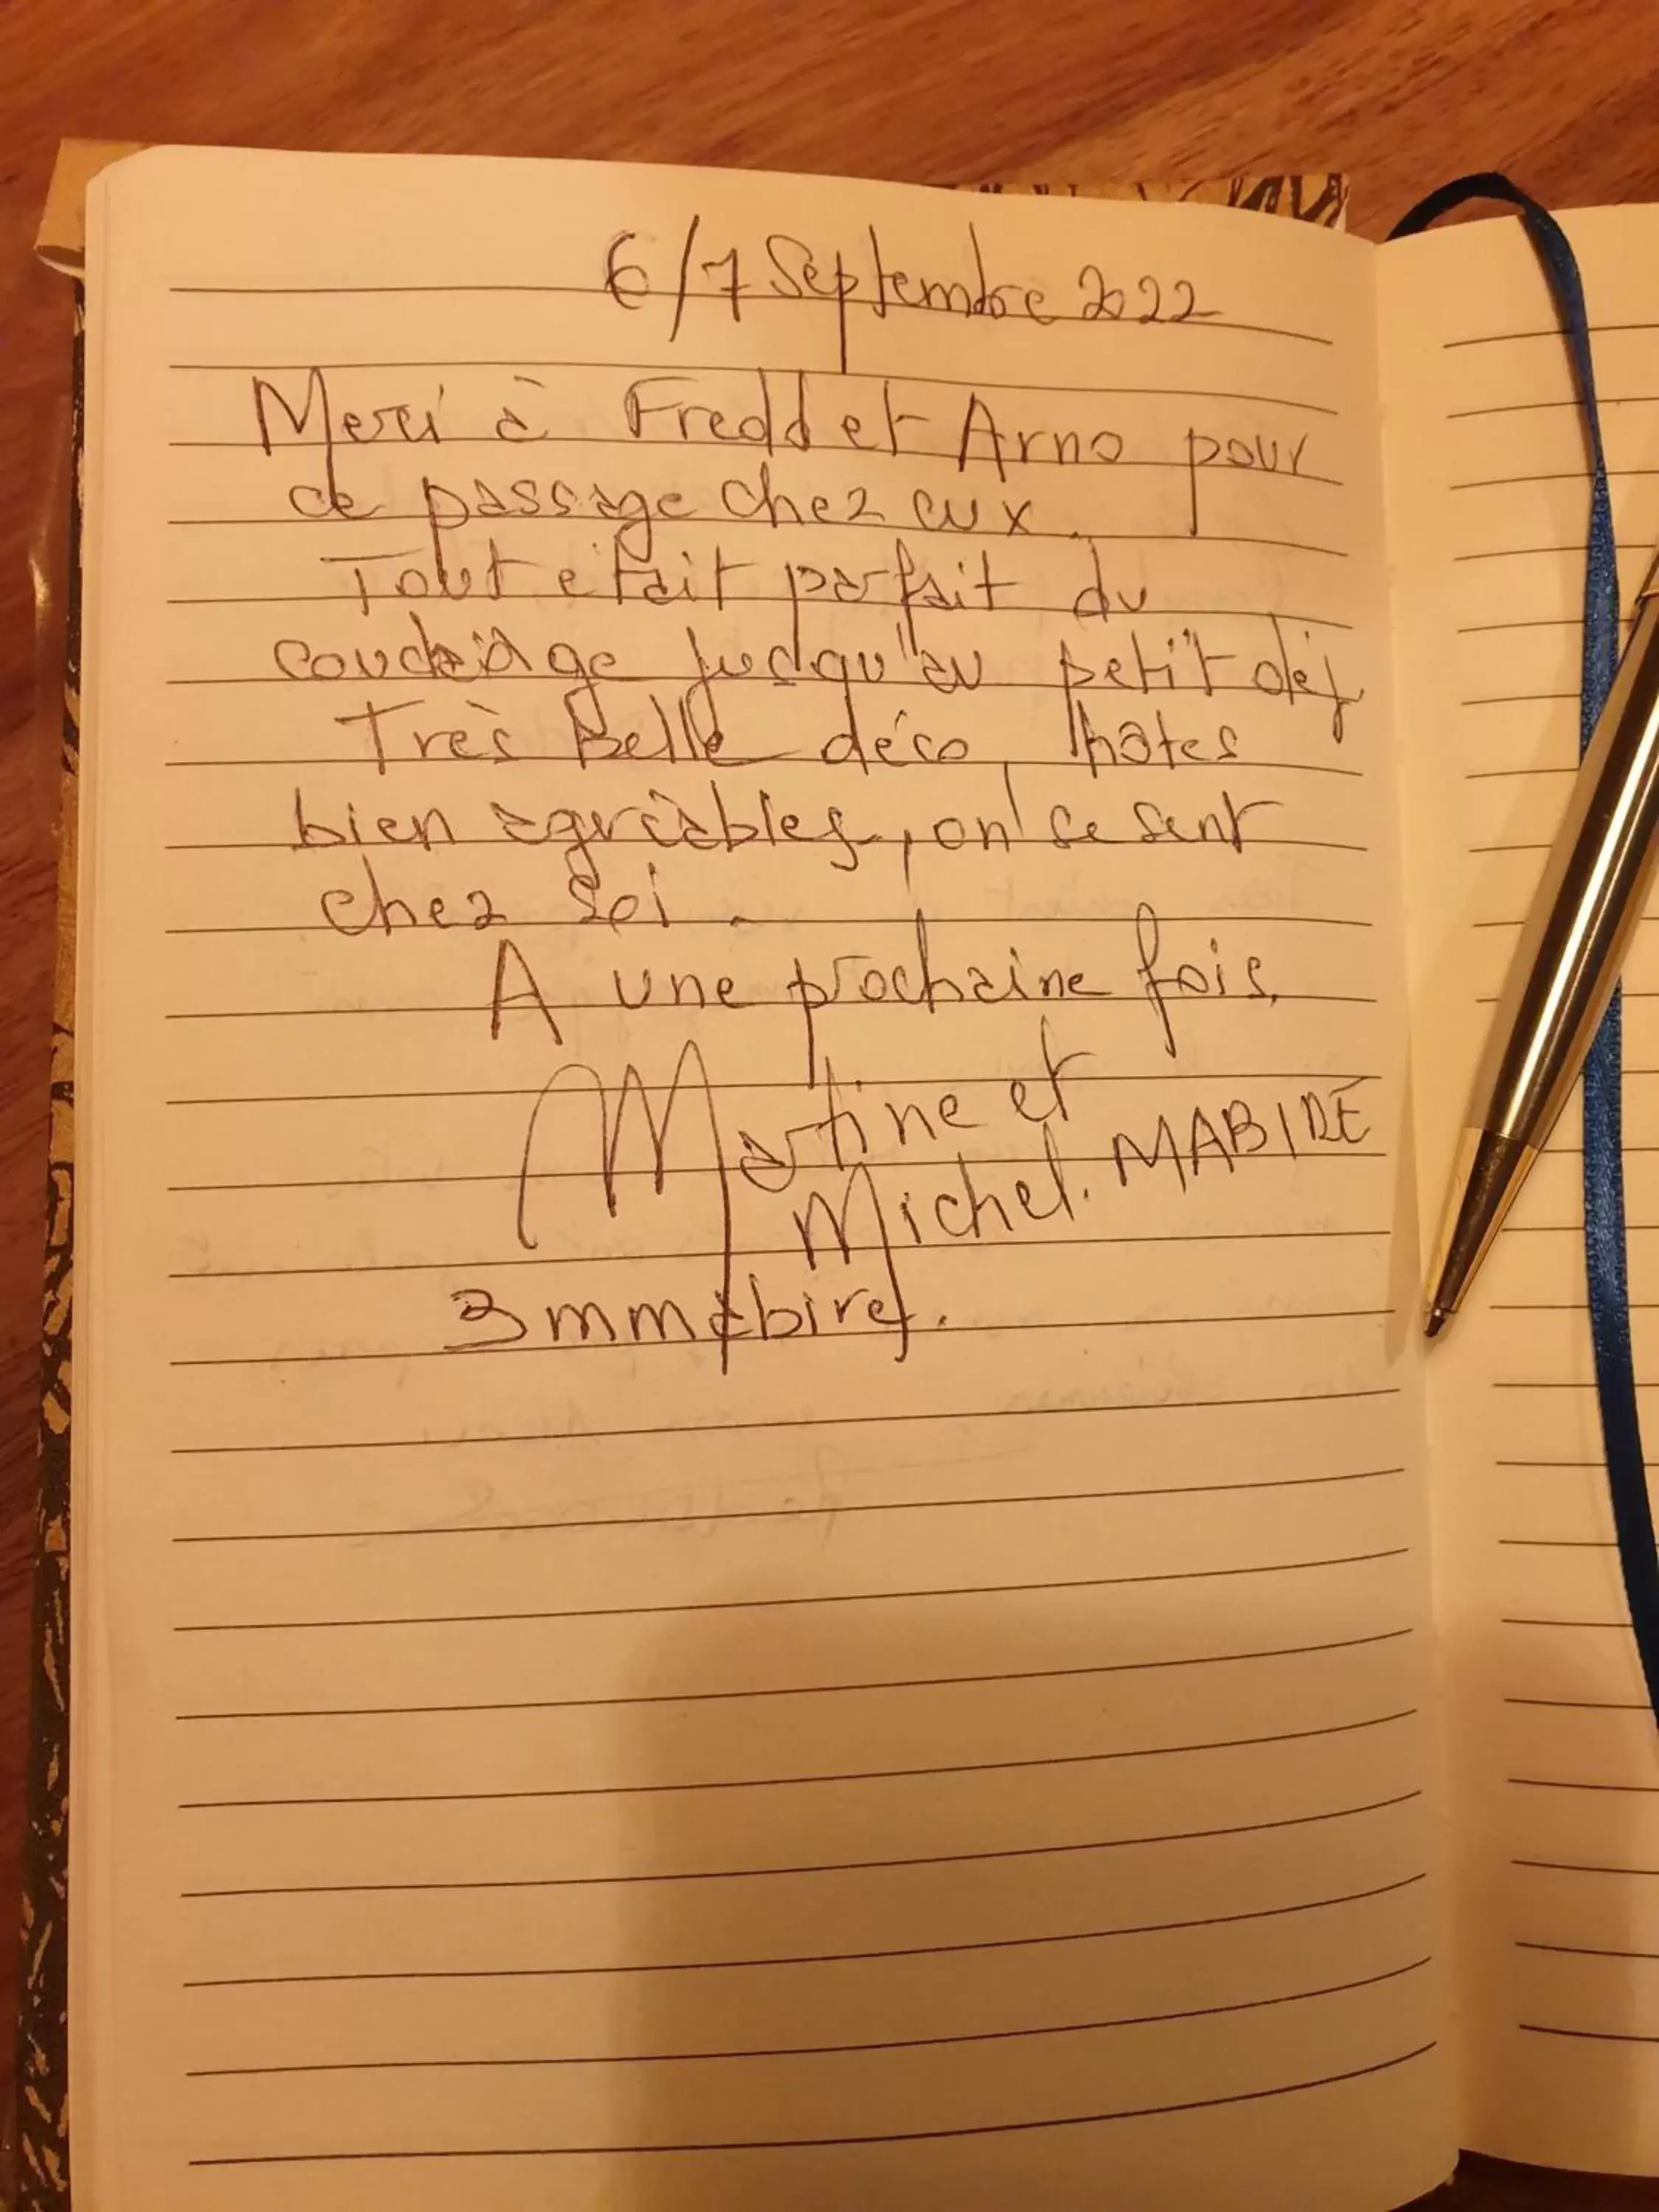 6/7 Septembre 2022
Merci à Fredd et Arno pour
ce passage chez eux.
Tout etait parfait du
couchage jusqu'au petit déj
Très belle déco, hôtes
bien agréables, on se sent
chez soi.
A une prochaine fois.
Martine et
Michel. MABIRE
3mmabires.